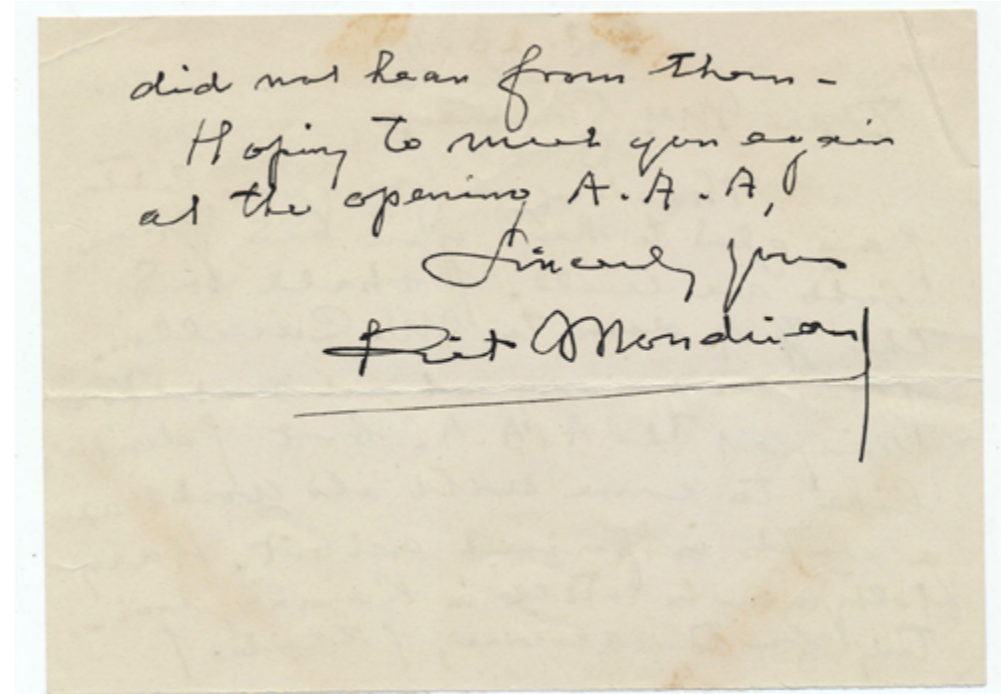 did not hear from them -
Hoping to meet you again
at the opening A.A.A,
Sincerely yours
Piet Mondrian